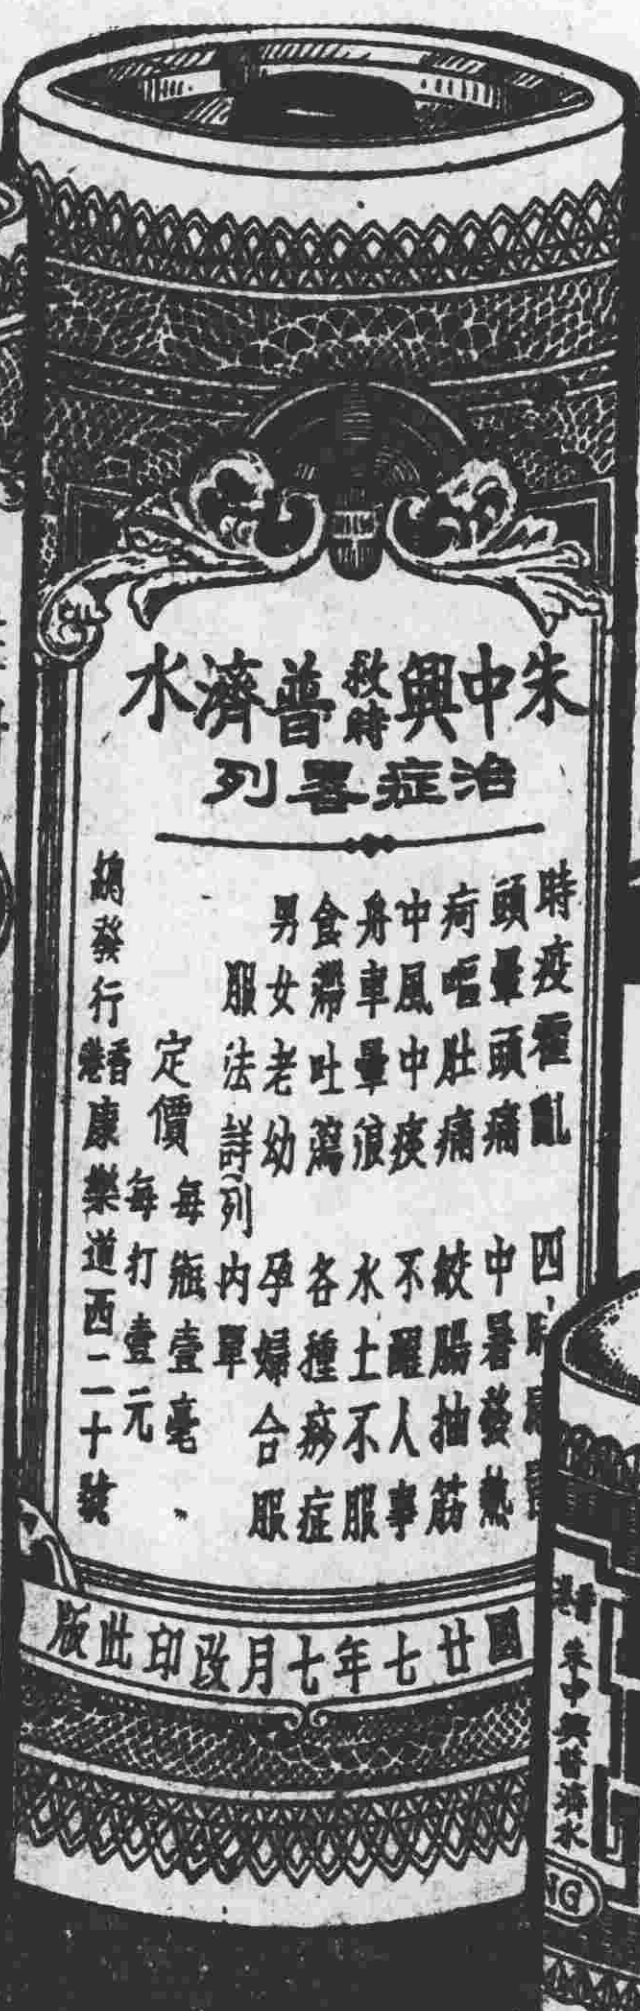 朱中興救時普濟水
治症畧列
時疫霍亂 四時感冒
頭暈頭痛 中暑發熱
疴嘔肚痛 絞腸抽筋
中風中痰 不醒人事
舟車暈浪 水土不服
食滯吐瀉 各種痧症
男女老幼 孕婦合服
服法詳列內單
定價
每瓶壹毫
每打壹元
總發行香港康樂道西二十號
國廿七年七月改印此版
香港
朱中興普濟水
NG